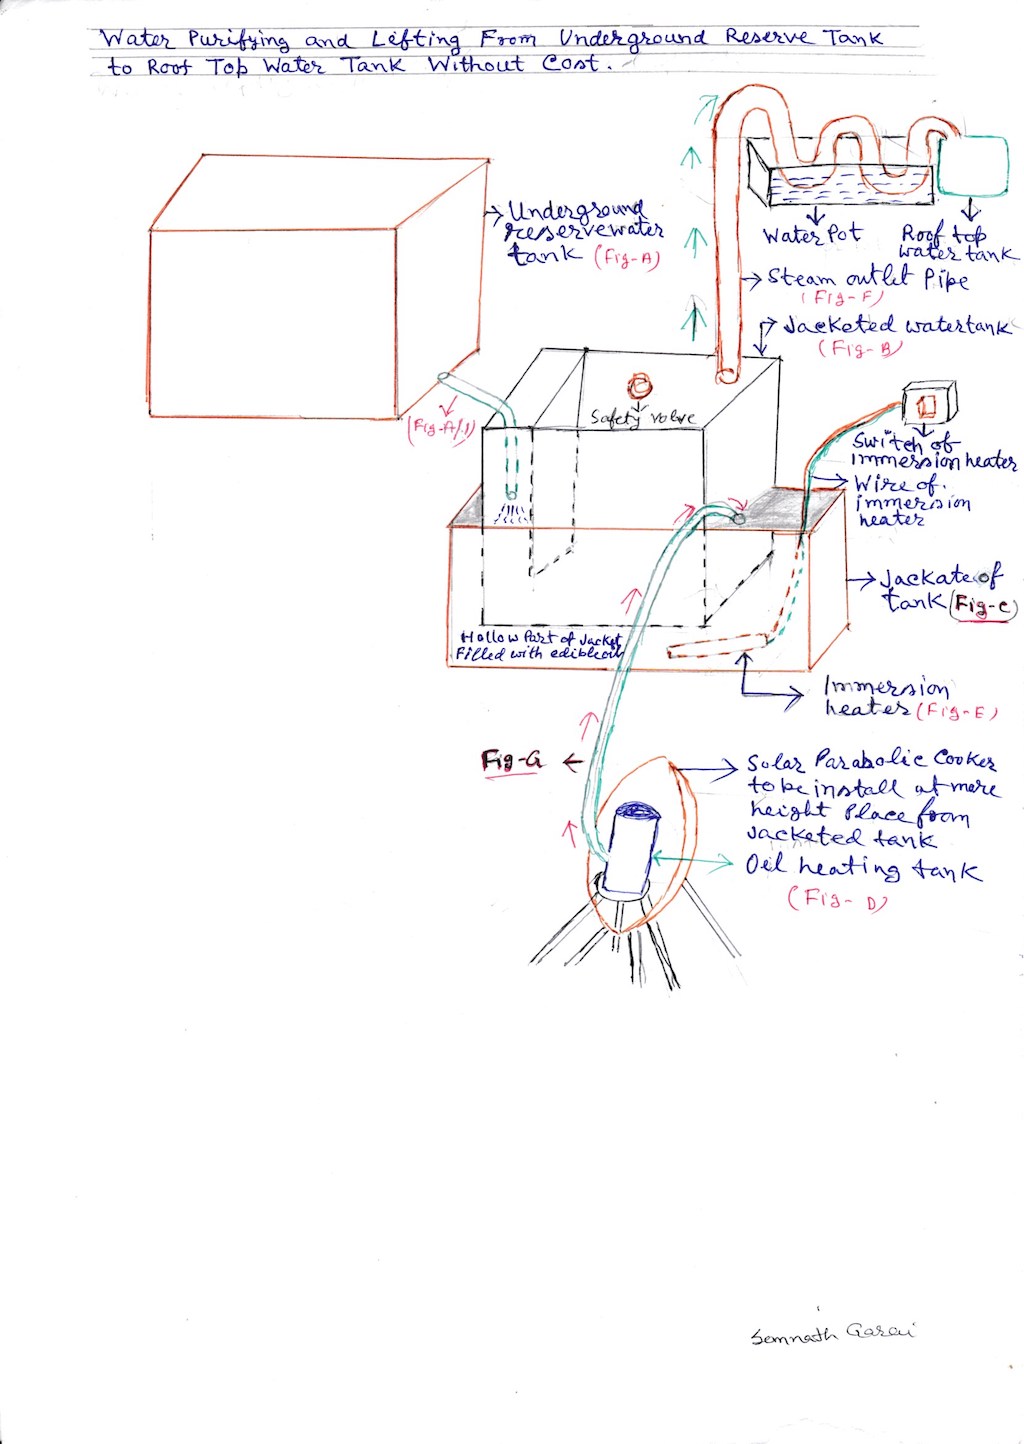 Water Purifying and Lefting From Underground Reserve Tank
to Roof Top Water Tank Without Cost.
Underground
reservewater
tank (Fig-A)
Water Pot
Roof top
water tank
Steam outlet Pipe
(Fig-F)
Jacketed watertank
(Fig-B)
(Fig-A/1)
Safety valve
Switch of
immersion heater
Wire of
immersion
heater
Jackate of
tank (Fig-C)
Hollow Part of Jacket
Filled with edibleoil
Immersion
heater (Fig-E)
Fig-G
Solar Parabolic Cooker
to be install at more
height Place from
Jacketed tank
Oil heating tank
(Fig-D)
Somnath Garai